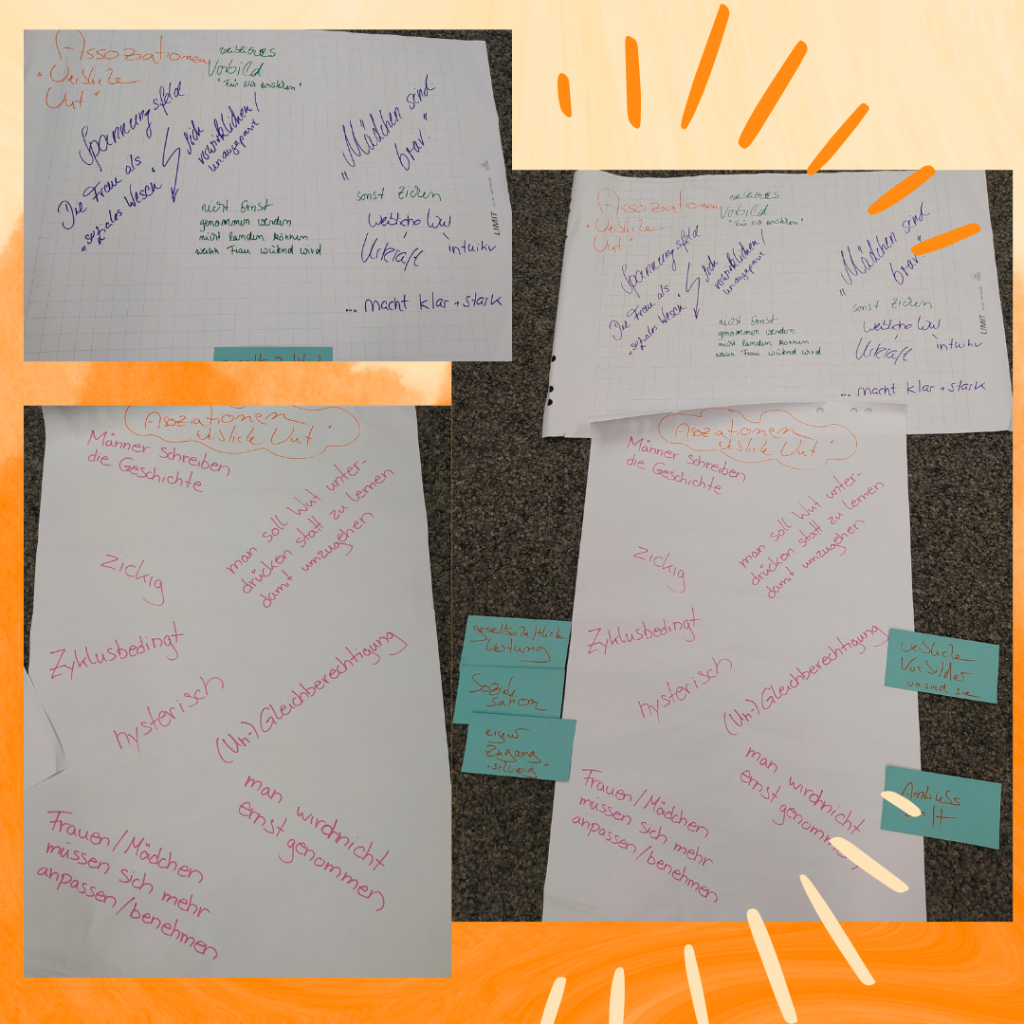 Assoziationen
"Weibliche
Wut"
weibliches
Vorbild
"Für sich einstehen"
Spannungsfeld
Die Frau als
"soziales Wesen"
sich
verwirklichen/
unangepasst
"Mädchen sind
brav"
sonst Zicken
nicht Ernst
genommen werden
nicht landen können
wenn Frau wütend wird
weibliche Wut
Urkraft
intuitiv
... macht klar + stark
LIMIT
Assoziationen
"Weibliche
Wut"
weibliches
Vorbild
"Für sich einstehen"
Spannungsfeld
Die Frau als
"soziales Wesen"
sich
verwirklichen/
unangepasst
"Mädchen sind
brav"
sonst Zicken
nicht Ernst
genommen werden
nicht landen können
wenn Frau wütend wird
weibliche Wut
Urkraft
intuitiv
... macht klar + stark
LIMIT
Asoziationen
weibliche Wut"
Männer schreiben
die Geschichte
man soll Wut unter-
drücken statt zu lernen
damit umzugehen
zickig
Zyklusbedingt
hysterisch
(Un-)Gleichberechtigung
man wird nicht
ernst genommen
Frauen/Mädchen
müssen sich mehr
anpassen/benehmen
Asoziationen
weibliche Wut"
Männer schreiben
die Geschichte
man soll Wut unter-
drücken statt zu lernen
damit umzugehen
zickig
Zyklusbedingt
hysterisch
(Un-)Gleichberechtigung
man wird nicht
ernst genommen
Frauen/Mädchen
müssen sich mehr
anpassen/benehmen
gesellschaftliche
Wertung
Soziali
sation
eigener
Zugang
schwierig
weibliche
Vorbilder
wo sind sie